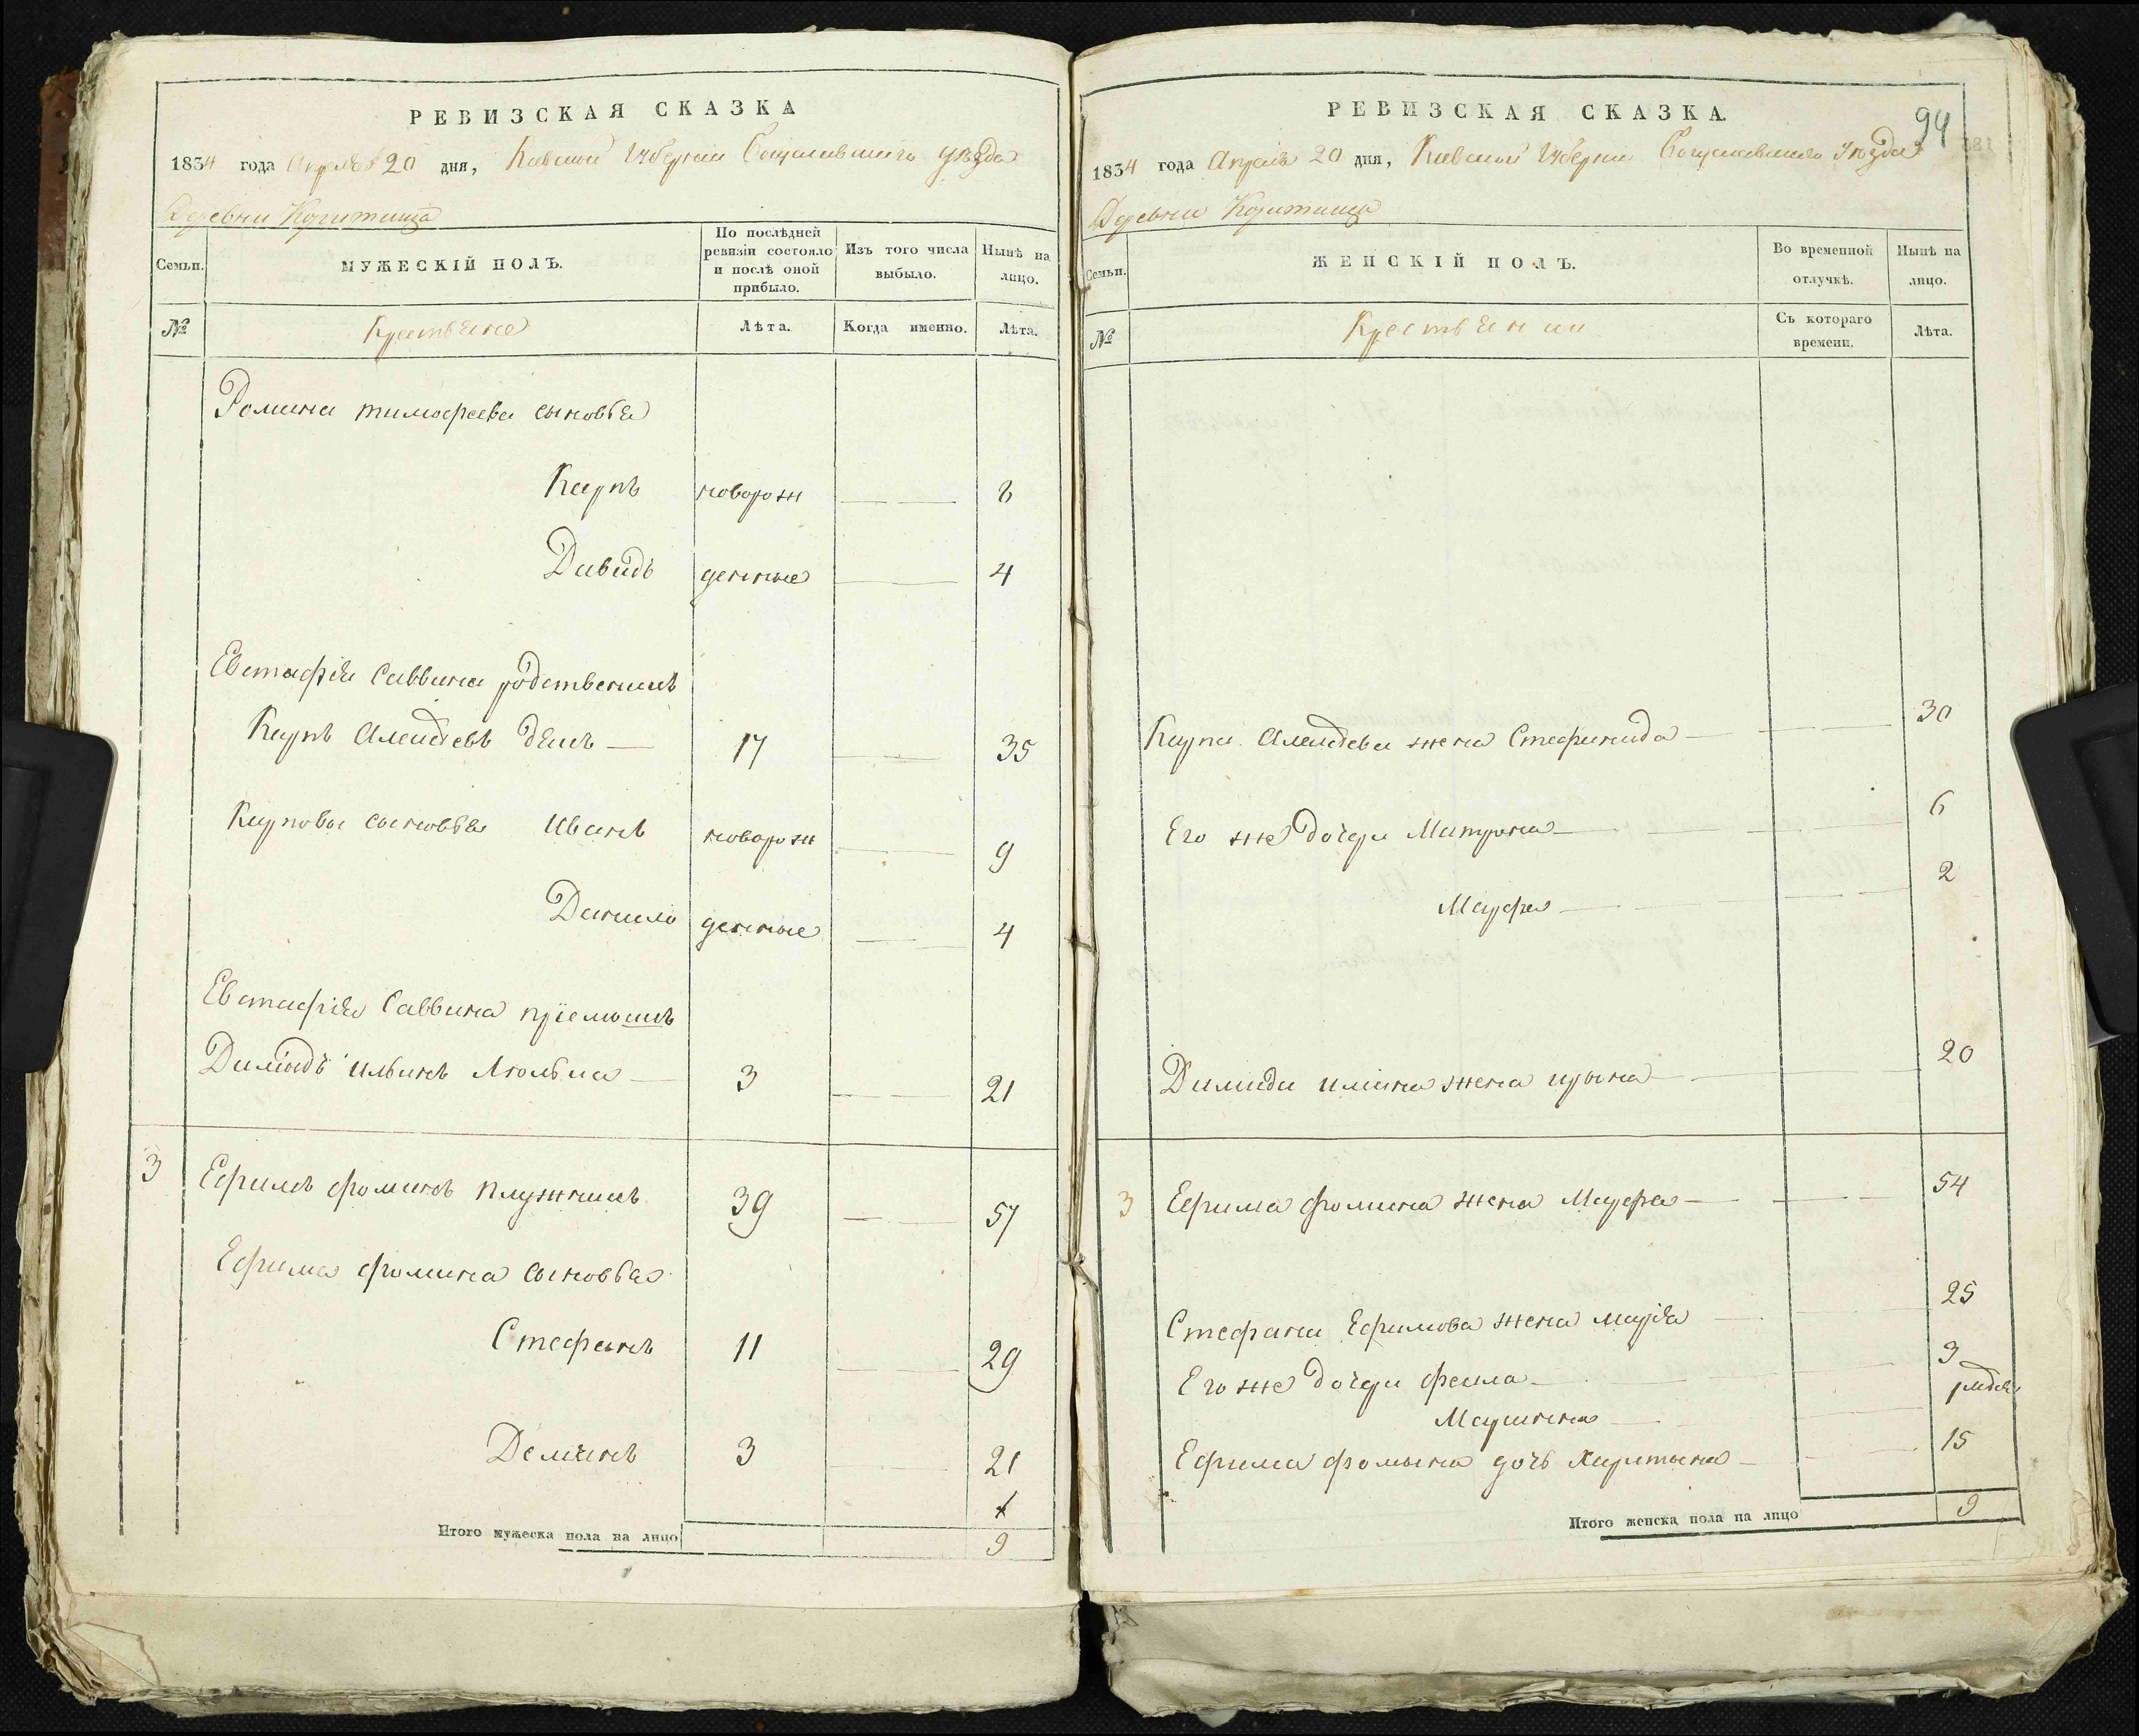 РЕВИЗСКАЯ СКАЗКА
1834 года Апреля 20 дня, Киевской Губернии Богуславского уезда
Деревни Коритища
Семьи.
МУЖЕСКІЙ ПОЛЪ.
По послѣдней ревизіи состояло и послѣ оной прибыло.
Изъ того числа выбыло.
Нынѣ на лицо.
№
Крестьяне
Лѣта.
Когда именно.
Лѣта.
Романа тимофеева сыновья
Карпъ новорож 8
Давидъ денные 4
Евстафія Саввина родственникъ
Карпъ Алексѣевъ 17 35
Карповы сыновья Иванъ новорож 9
Данило денные 4
Евстафія Саввина пріемышъ
Демидъ ильинъ Люлька 3 21
3 Ефимъ фоминъ плужникъ 39 57
Ефима фомина сыновья
Стефанъ 11 29
Демянъ 3 21
Итого мужеска пола на лицо 9
РЕВИЗСКАЯ СКАЗКА
94
1834 года Апреля 20 дня, Киевской Губернии Богуславского Уезда
Деревни Коритища
Семьи.
ЖЕНСКІЙ ПОЛЪ.
Во временной отлучкѣ.
Нынѣ на лицо.
№
Крестьянки
Съ котораго времени.
Лѣта.
Карпа Алексѣева жена Стефанида 30
Его же дочери Матрона 6
Марфа 2
Демида илина жена ирына 20
3 Ефима фомина жена Марфа 54
Стефана Ефимова жена марія 25
Его же дочери фекла 3
Марианна
Ефима фомына дочь Харитына 15
Итого женска пола на лицо 9